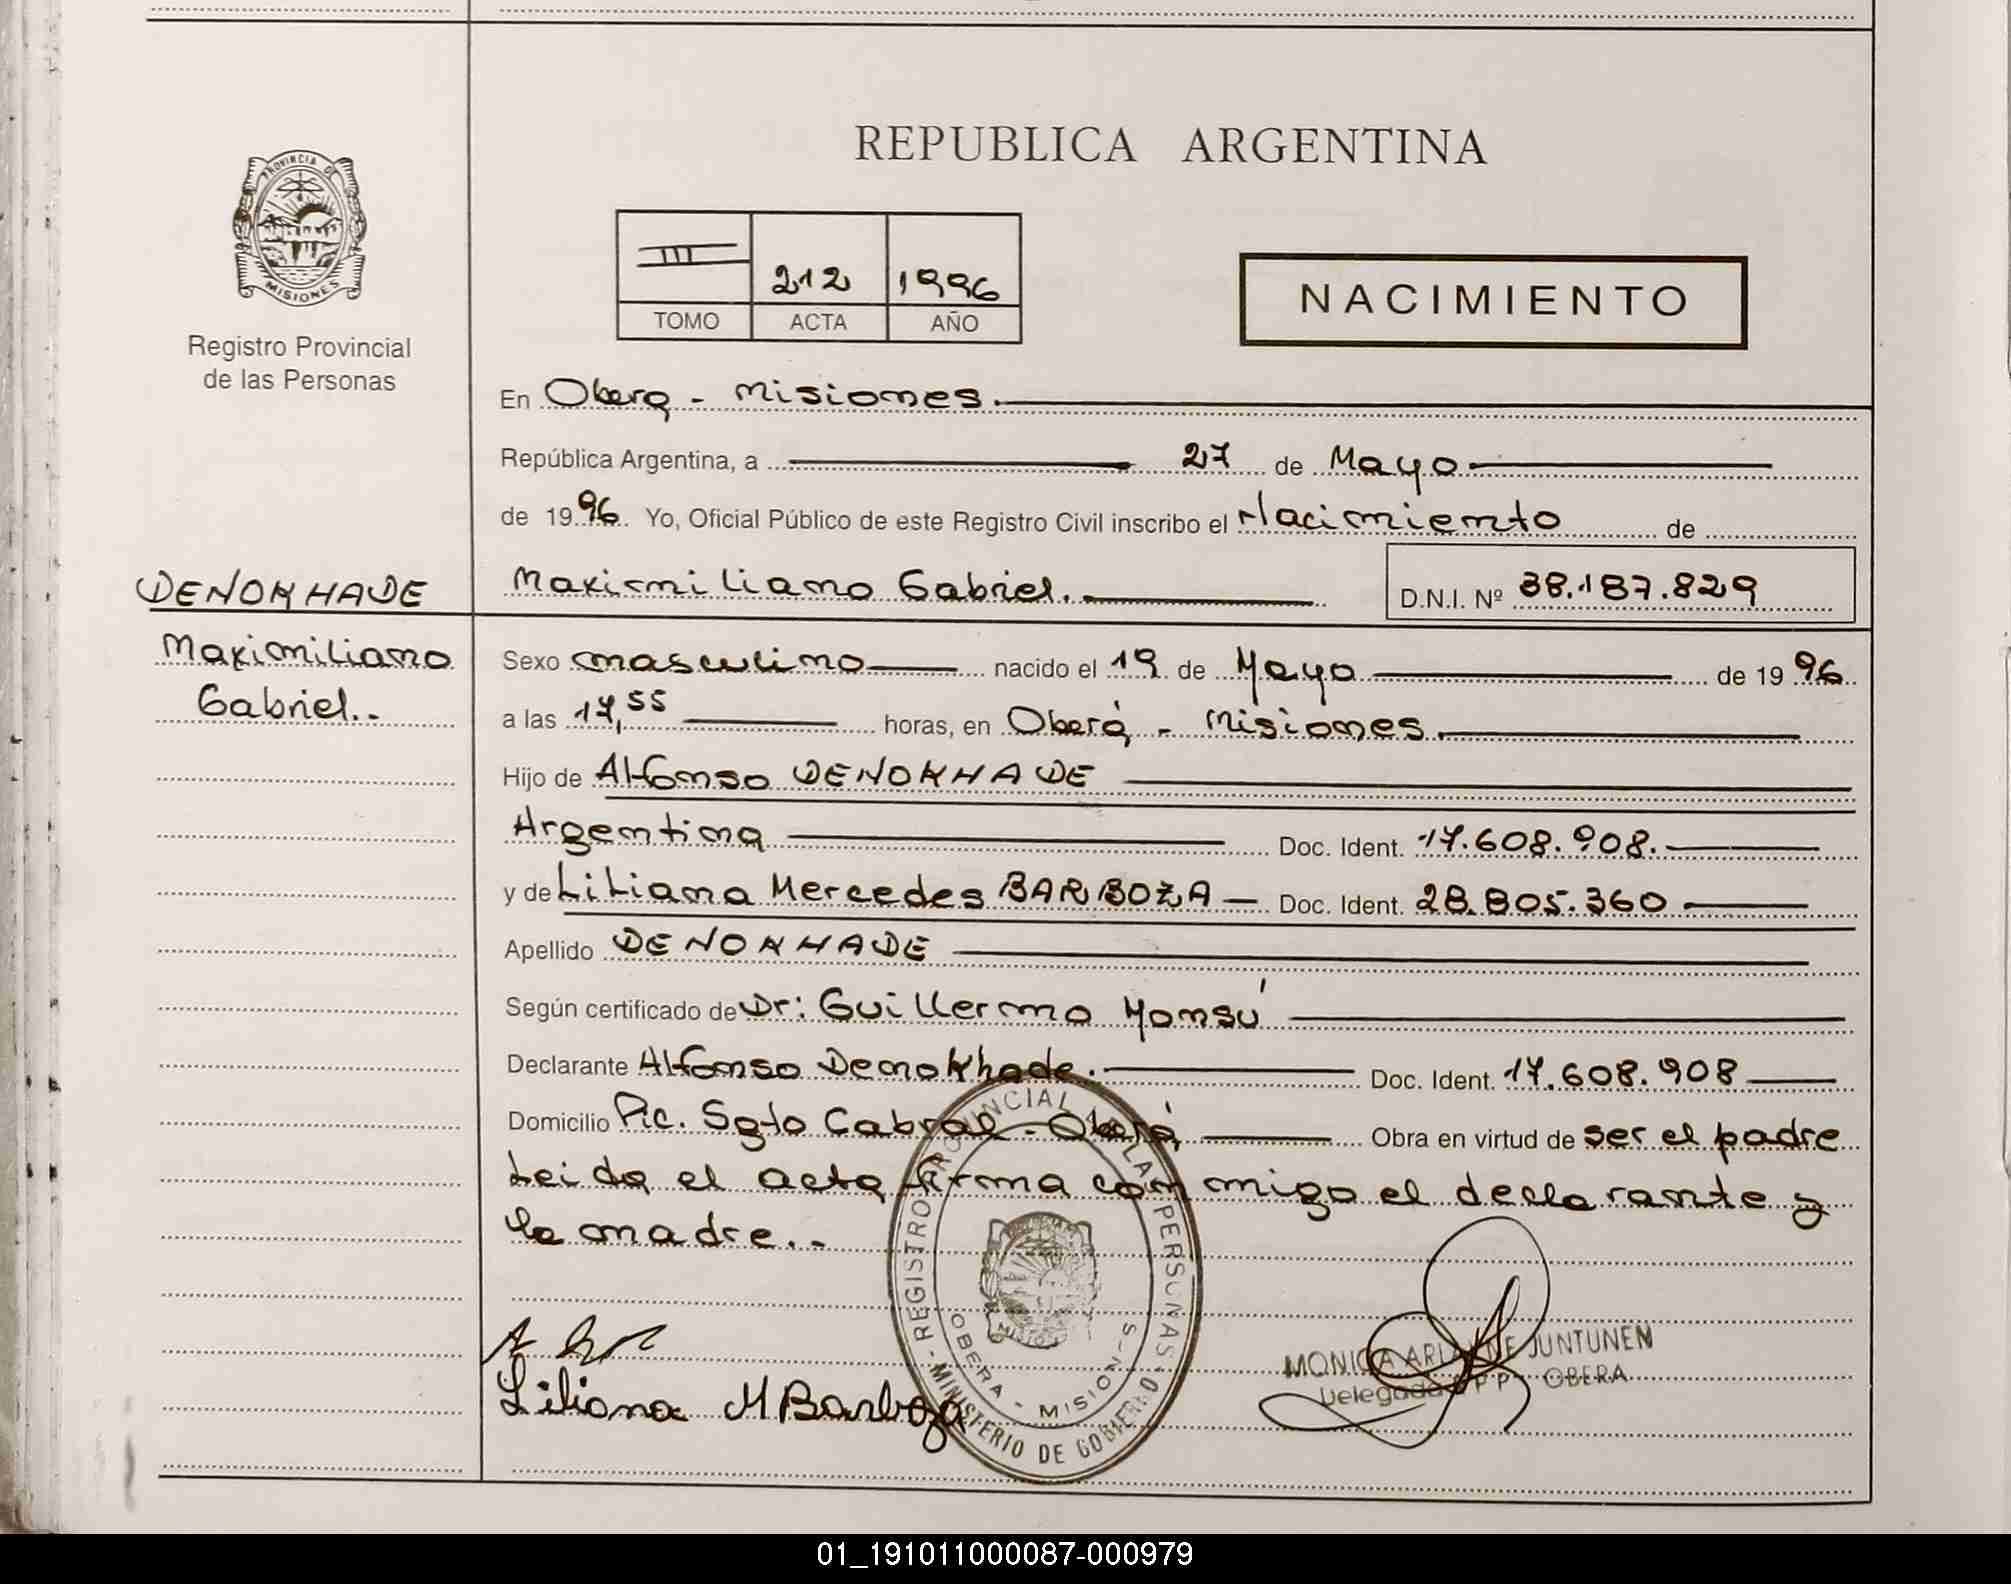 PROVINCIA DE
MISIONES
Registro Provincial
de las Personas
REPUBLICA ARGENTINA
III 212 1996
TOMO ACTA AÑO
NACIMIENTO
En Obera - Misiones.
República Argentina, a 27 de Mayo
de 1996. Yo, Oficial Público de este Registro Civil inscribo el Nacimiento de
DENOKHADE
Maximiliano Gabriel. D.N.I. Nº 38.187.829
Maximiliano
Gabriel..
Sexo masculino nacido el 19 de Mayo de 1996
a las 17,55 horas, en Oberá - Misiones.
Hijo de Alfonso DENOKHADE
Argentina Doc. Ident. 17.608.908.
y de Liliana Mercedes BARBOZA Doc. Ident. 28.805.360
Apellido DENOKHADE
Según certificado de Dr: Guillermo Monsú
Declarante Alfonso Denokhade. Doc. Ident. 17.608.908
Domicilio Pic. Sgto Cabral - Oberá Obra en virtud de ser el padre
Leida el acta firma conmigo el declarante y
la madre..
REGISTRO PROVINCIAL DE LAS PERSONAS - MINISTERIO DE GOBIERNO
OBERA - MISIONES
MISIONES
Liliana M Barboza
MONICA ARIANNE JUNTUNEN
Delegada R.P.P. OBERA
01_191011000087-000979